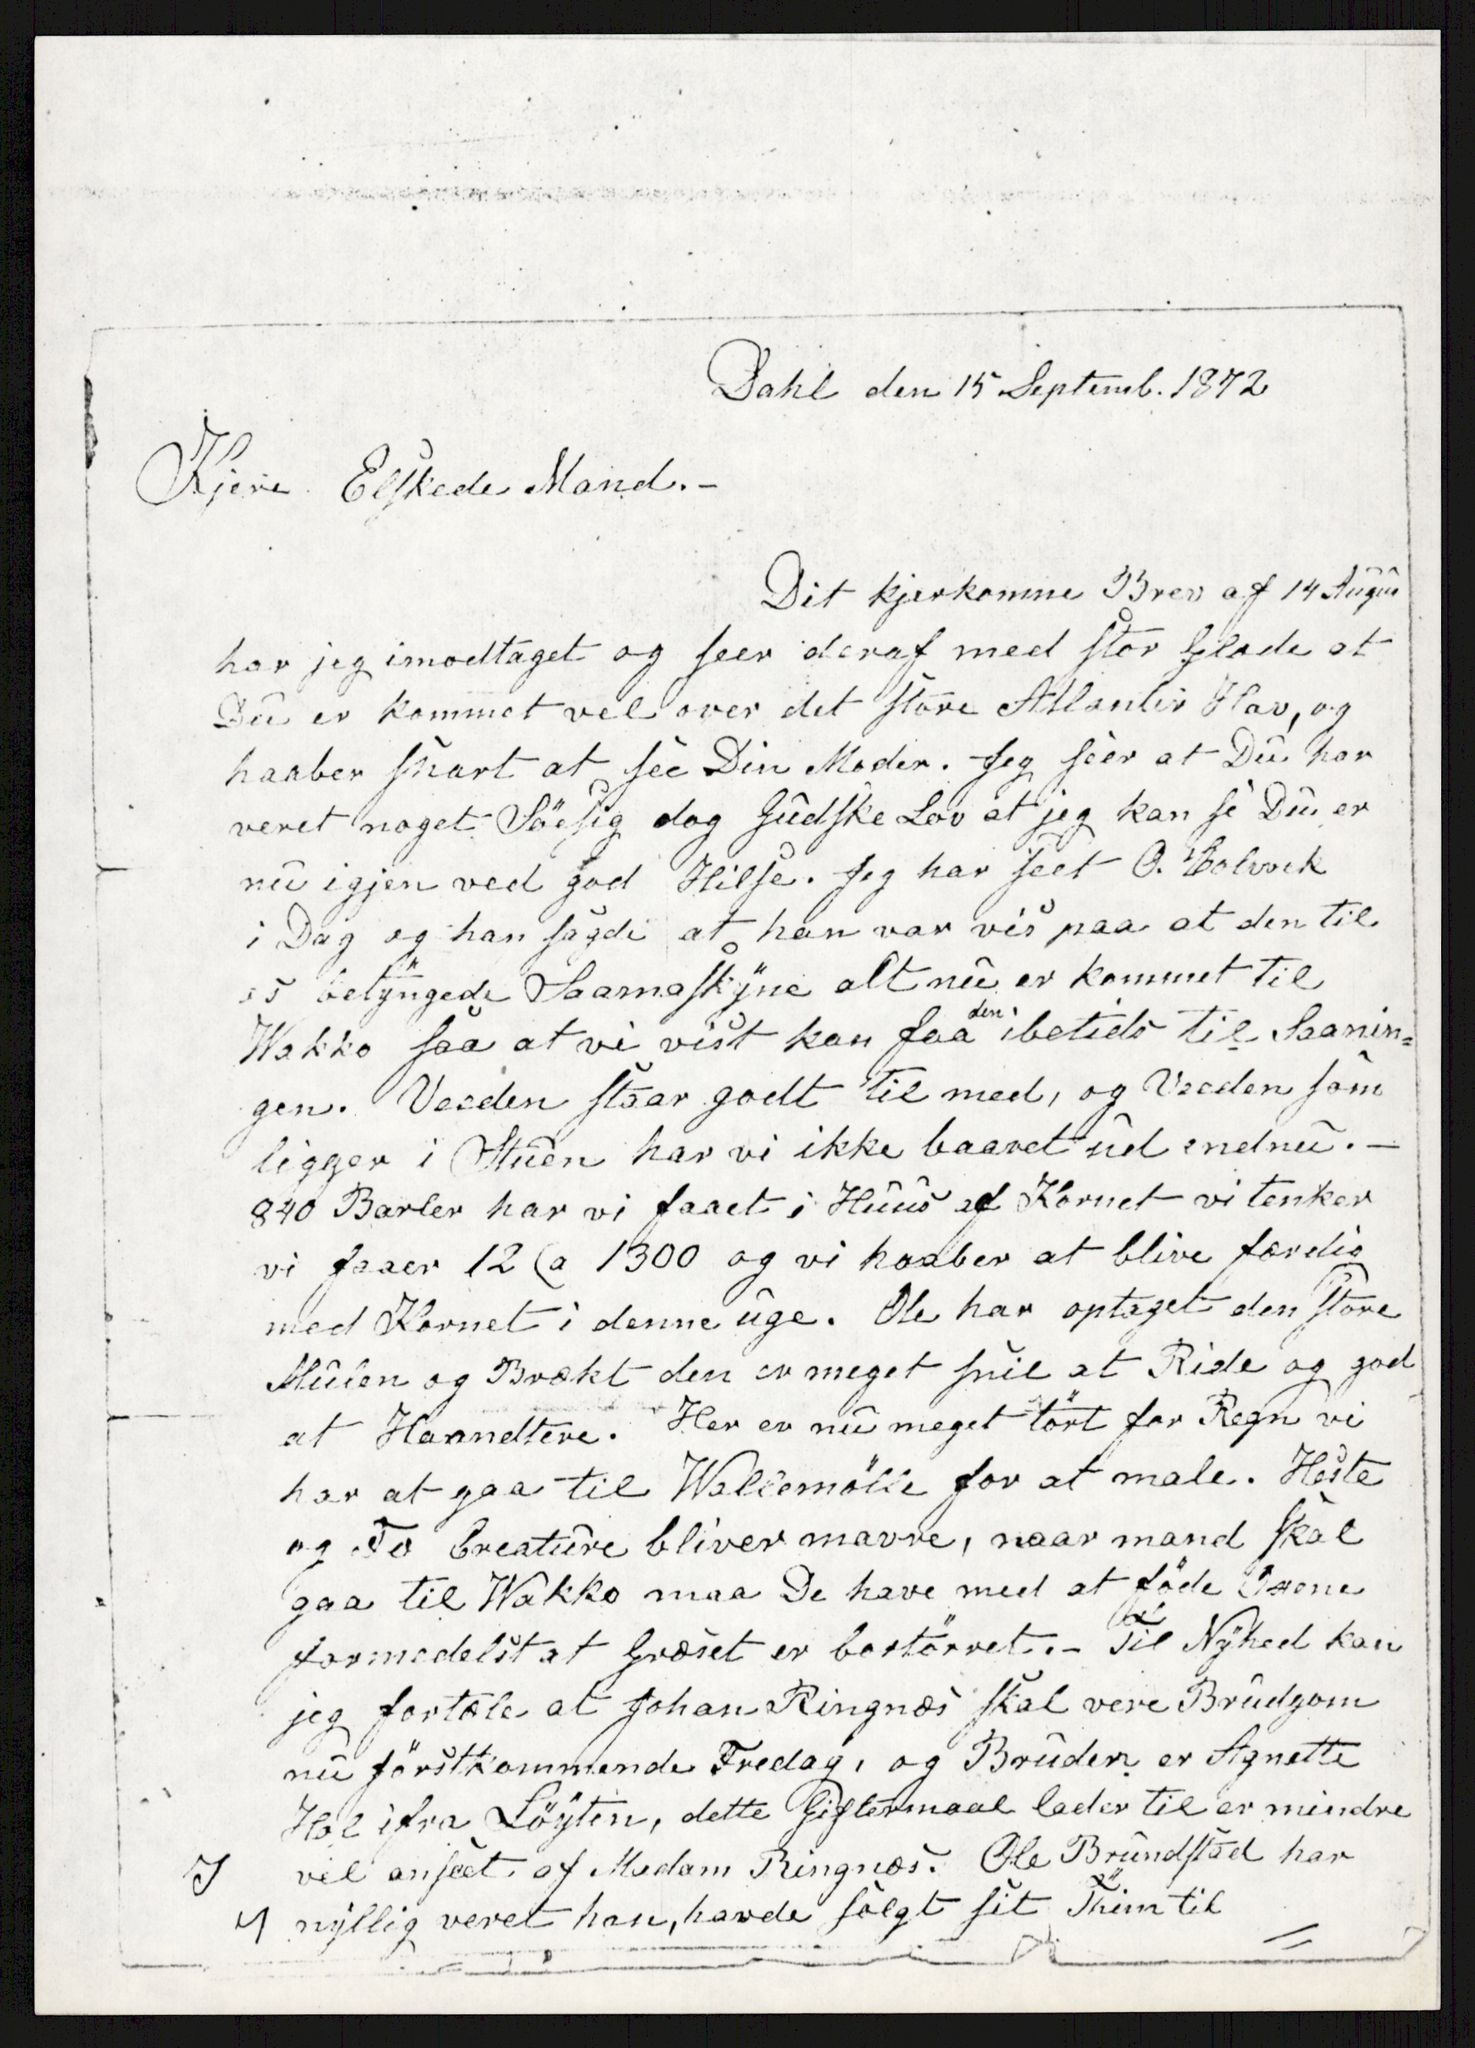 Dahl den 15 Septemb. 1872
Kjere Elskede Mand. -
Dit kjerkomne Brev af 14 Augus
har jeg imodtaget og seer deraf med stor Glade at
Du er kommet vel over det store Atlantis Hav, og
haaber snart at see Din Moder. Jeg seer at Du har
veret noget Söesig dog Gudske Lov at jeg kan se Du er
nu igjen ved god Hilse. Jeg har seet O.
i Dag og han sagde at han var vis paa at den til
os betyngede Saamaskyne alt nu er kommet til
Wakko saa at vi vist kan faa den ibetids til Saanin=
gen. Veeden staar godt til med, og Veeden som
ligger i Stuen har vi ikke baaret ud endnu. -
840 Barler har vi faaet i Huus af Kornet vi tenker
vi faaer 12 a 1300 og vi haaber at blive færdig
med Kornet i denne uge. Ole har optaget den store
Mulen og Brækt den er meget snil at Ride og god
at Haandtere. Her er nu meget tört for Regn vi
har at gaa til Wallemölle for at male. Heste
og Fo Creature bliver mavre, naar mand skal
gaa til Wakko maa De have med at föde Oxene
formedelst at Græset er bortörret. - Til Nyhed kan
jeg fortæle at Johan Ringnæs skal vere Brudgom
nu förstkommende Fredag, og Bruden er Agnette
Hol ifra Löyten, dette Giftermaal lader til er mindre
vel anseet af Madam Ringnæs. Ole Brundstad har
nyllig veret han, havde solgt sit Thim til